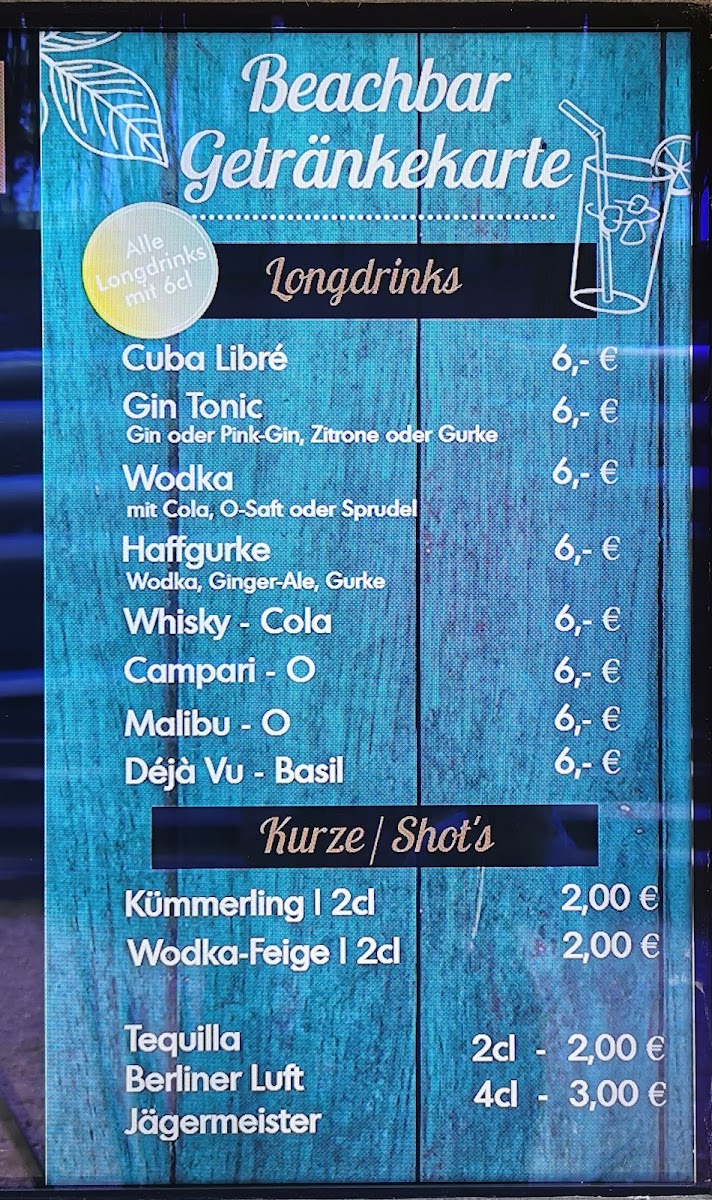 Beachbar
Getränkekarte
Alle
Longdrinks
mit 6cl
Longdrinks
Cuba Libré 6,- €
Gin Tonic 6,- €
Gin oder Pink-Gin, Zitrone oder Gurke
Wodka 6,- €
mit Cola, O-Saft oder Sprudel
Haffgurke 6,- €
Wodka, Ginger-Ale, Gurke
Whisky - Cola 6,- €
Campari - O 6,- €
Malibu - O 6,- €
Déjà Vu - Basil 6,- €
Kurze / Shot's
Kümmerling | 2cl 2,00 €
Wodka-Feige | 2cl 2,00 €
Tequilla 2cl - 2,00 €
Berliner Luft 4cl - 3,00 €
Jägermeister